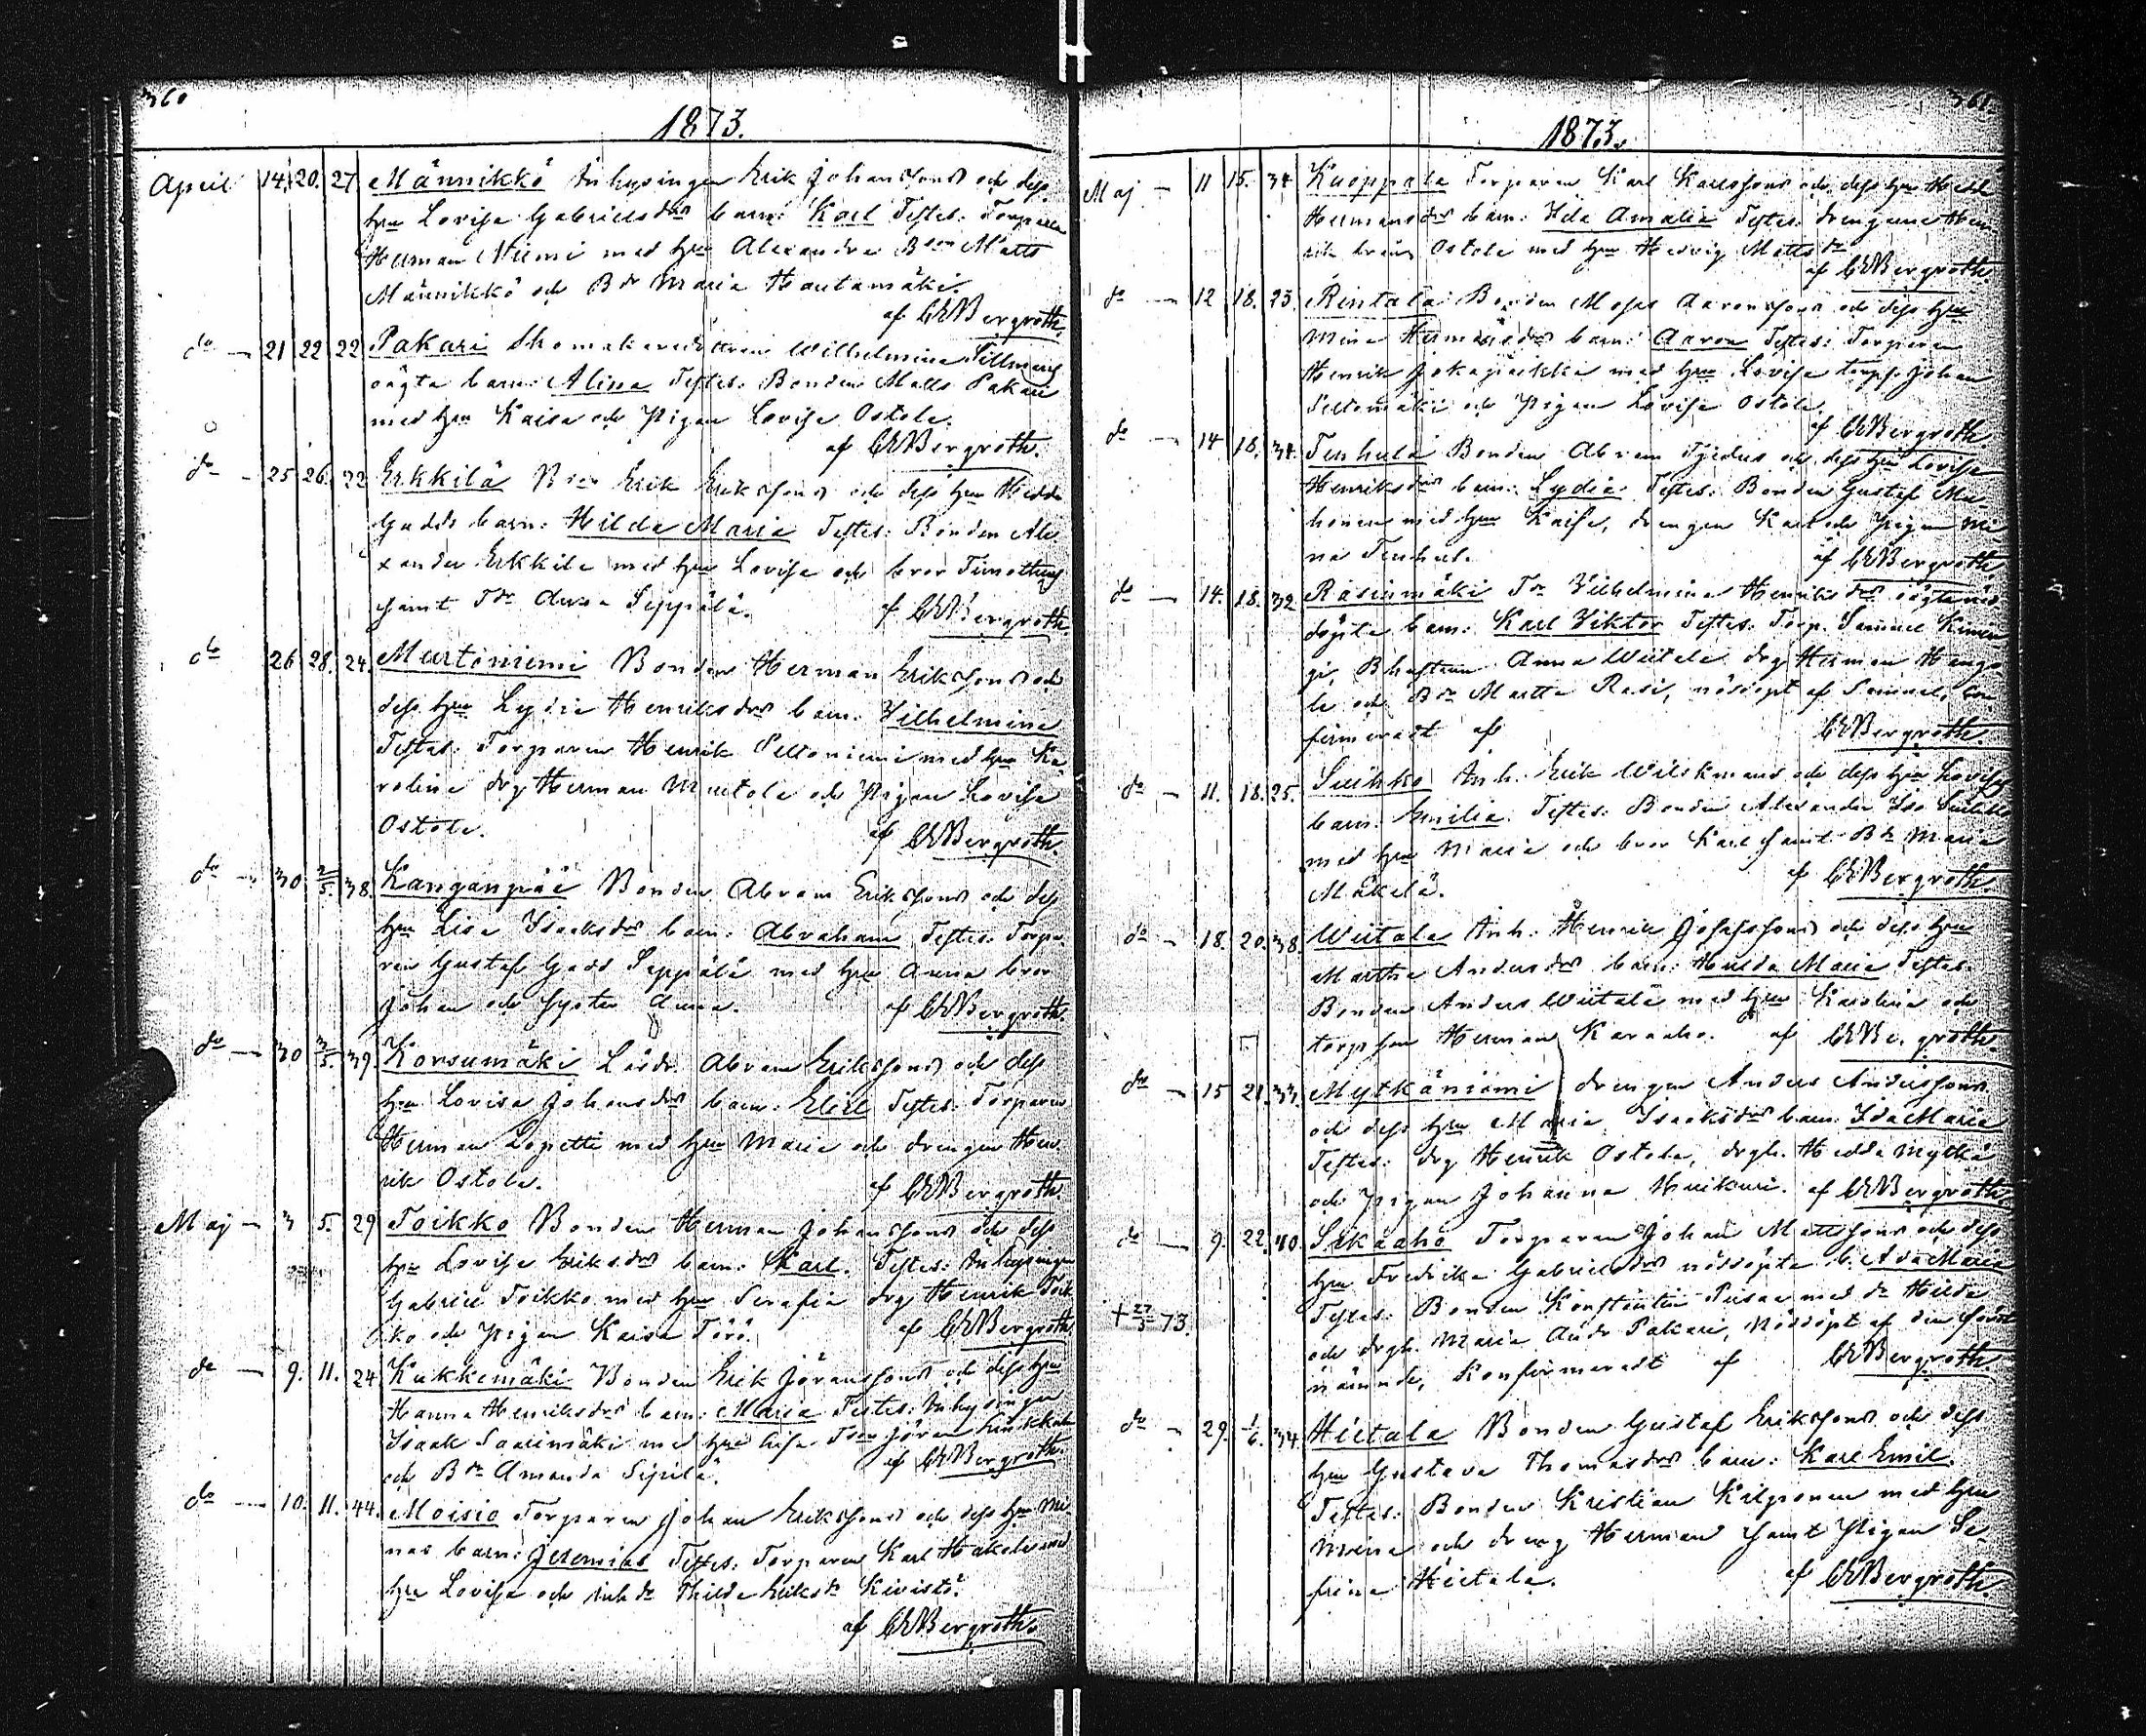 360
1873.
April 14. 20. 27 Männikkö Inhysingen Erik Johanssons och dess
hru Lovisa Gabrielsdrs barn: Karl Testes: Torparen
Herman Niemi med hru Alexandra Bson Matts
Männikkö och Bdr Maria Hautamäki.
af CEBergroth.
do — 21 22 22 Pakari Skomakaredottren Wilhelmina Tillmans
oägta barn: Alina Testes: Bonden Matts Pakari
med hru Kaisa och Pigan Lovisa Ostola.
af CEBergroth.
do - 25 26. 22 Erkkilä Bson Erik Erikssons och dess hru Hedda
Gadds barn: Hilda Maria Testes: Bonden Ale
xander Erkkila med hru Lovisa och bror Timotheus
samt Tdr Anna Seppälä. af CEBergroth.
do 26 28. 24. Murtoniemi Bonden Herman Erikssons och
dess hru Lydia Henriksdrs barn: Wilhelmina
Testes: Torparen Henrik Peltoniemi med hru Ka
rolina drg Herman Murtola och Pigan Lovisa
Ostola. af CEBergroth.
do — 30 2/5. 38. Kanganpää Bonden Abram Erikssons och dess
hru Lisa Isaksdrs barn: Abraham Testes: Torpa
ren Gustaf Gadd Seppälä med hru Anna bror
Johan och syster Anna. af CEBergroth.
do — 30 3/5. 39. Korsumäki Abram Erikssons och dess
hru Lovisa Johansdrs barn: Testes: Torparen
Herman Lopetti med hru Maria och drengen Hen
rik Ostola. af CEBergroth.
Maj — 3 5. 29 Toikko Bonden Herman Johanssons och dess
hru Lovisa Eriksdrs barn: Karl. Testes: Inhysingen
Gabriel Toikko med hru Serafia drg Henrik Toik
ko och Pigan Kaisa Törö. af CEBergroth
do — 9. 11. 24 Kukkemäki Bonden Erik Göranssons och dess hru
Hanna Henriksdrs barn: Maria Testes: Inhysingen
Isaak Saarimäki med hru Lisa Tson Göran
och Bdr Amanda Sipilä. af CEBergroth.
do — 10. 11. 44. Moisio Torparen Johan Erikssons och dess hru Mi
nas barn: Jeremias Testes: Torparen Karl Hakola med
hru Lovisa och Inhdr Thilda Eriksdr Kivistö.
af CEBergroth.
361
1873.
Maj — 11 15. 34 Kuoppala Torparen Karl Karlssons och dess hru Hedda
Hermansdrs barn: Ida Amalia Testes: drengarne Hen
rik Ostola med hru Hedvig Mattsdr
af CEBergroth.
do — 12 18. 23. Rintala Bonden Moses Aaronssons och dess hru
Mina Hermansdrs barn: Aaron Testes: Torparen
Henrik Jokapiikka med hru Lovisa torps. Johan
Peltomäki och Pigan Lovisa Ostola.
af CEBergroth.
do — 14 18. 34. Tenhula Bonden Abram och dess hru Lovisa
Henriksdrs barn: Lydia Testes: Bonden Gustaf Mu
honen med hru Kaisa, drengen Karl och Pigan Mi
na Tenhula. af CEBergroth.
do — 14. 18. 32 Räsiimäki Tdr Wilhelmina Henriksdrs oägta nöd
döpta barn: Karl Viktor Testes: Torp. Samuel
Anna Wiitala drg Herman
och Bdr Martta Rasi, nöddöpt af Samuel, con
firmeradt af CEBergroth.
do — 11. 18. 25. Suihko Inh. Erik och dess hru Lovisas
barn: Emilia. Testes: Bonden Alexander Iso
med hru Maria och bror Karl samt Bdr Maria
Mäkelä. af CEBergroth.
do — 18. 20. 38. Wiitala Inh. Henrik Josefssons och dess hru
Martha Andersdrs barn: Hulda Maria Testes:
Bonden Anders Wiitala med hru Karolina och
torpson Herman Karaaho. af CEBergroth.
do — 15 21. 33. Mytkäniemi drengen Anders Anderssons
och dess hru Maria Isaksdrs barn: Ida Maria
Testes: drg Henrik Ostola, drgh. Hedda Mytkä
och Pigan Johanna Huikuri. af CEBergroth.
do — 9. 22. 40. Sikaaho Torparen Johan Mattssons och dess
hru Fredrika Gabrielsdrs nöddöpta b: Ada Maria
+ 27/5 73. Testes: Bonden Konstantin Piisaa med dr Hilda
och drgh. Maria Pakari, nöddöpt af den först
nämnde, Konfirmeradt af CEBergroth
do — 29. 1/6. 34. Hietala Bonden Gustaf Erikssons och dess
hru Gustava Thomasdrs barn: Karl Emil.
Testes: Bonden Kristian Kilponen med hru
Maria och dreng Herman samt Pigan Se
rafina Hietala. af CEBergroth.